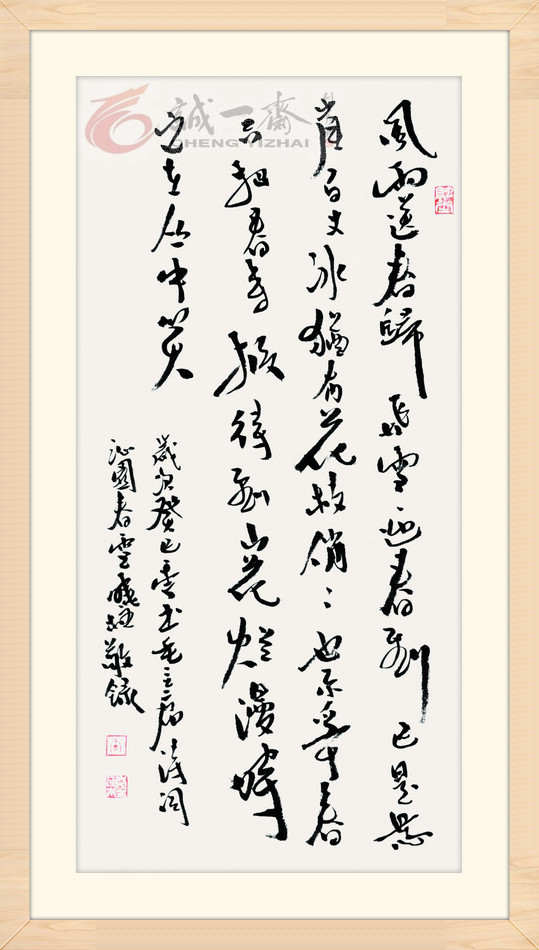 誠一齋
CHENG YIZHAI
風雨送春歸飛雪迎春到已是懸
崖百丈冰猶有花枝俏〻也不爭春
只把春来报待到山花烂漫時
她在丛中笑
歲次癸巳書毛主席詩詞
沁園春雪敬録